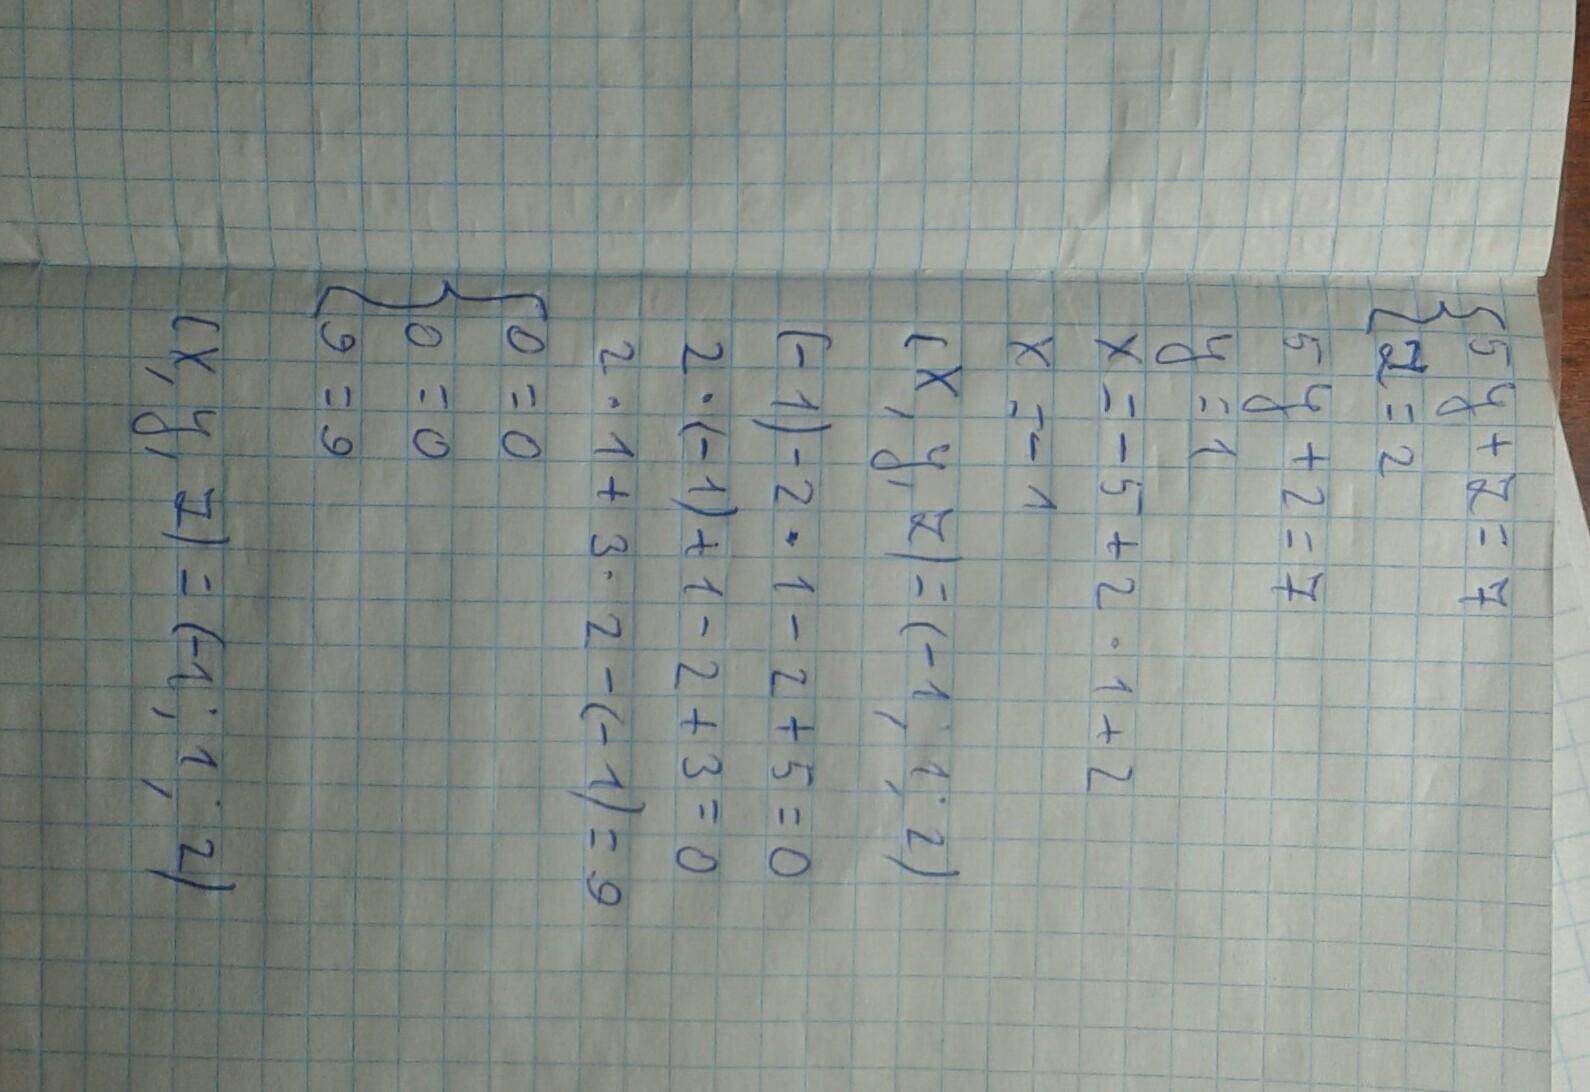 { 5y + z = 7
{ z = 2
5y + 2 = 7
y = 1
x = -5 + 2 · 1 + 2
x = -1
(x, y, z) = (-1; 1; 2)
(-1) - 2 · 1 - 2 + 5 = 0
2 · (-1) + 1 - 2 + 3 = 0
2 · 1 + 3 · 2 - (-1) = 9
{ 0 = 0
{ 0 = 0
{ 9 = 9
(x, y, z) = (-1; 1; 2)